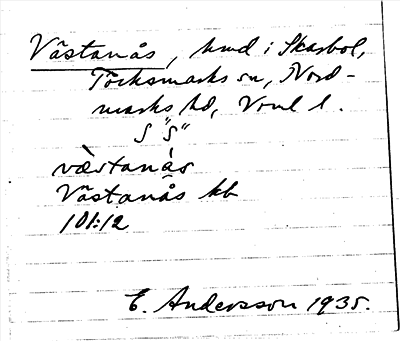 Västanås, hmd i Skarbol,
Töcksmarks sn, Nord-
marks hd, Vrml l.
S "S"
væstanås
Västanås kb
101:12
E. Andersson 1935.